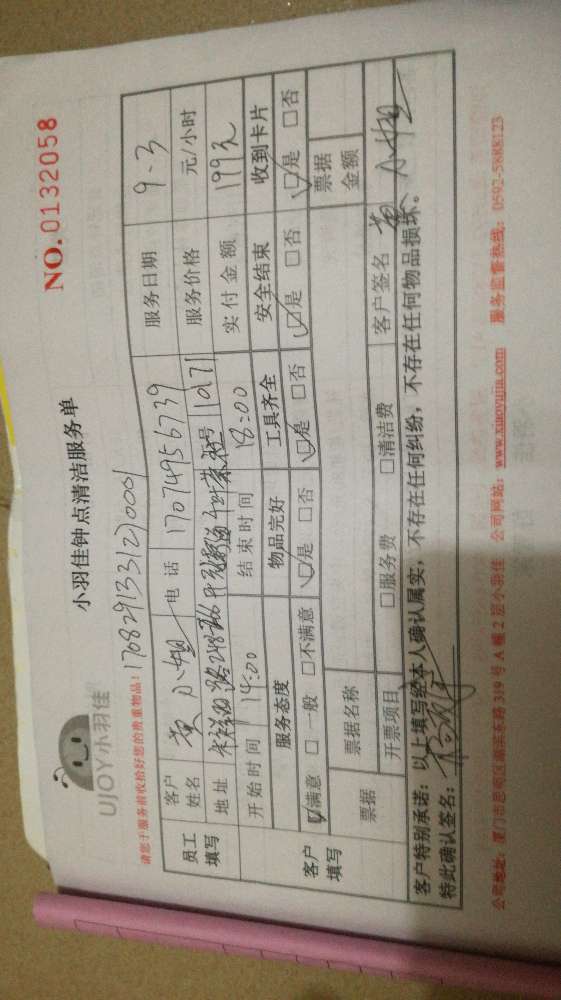 UJOY小羽佳
小羽佳钟点清洁服务单
NO.0132058
请您于服务前收拾好您的贵重物品!
1708291331270001
员工填写
客户姓名 黄小姐 电话 17074956739 服务日期 9.3
地址 服务价格 元/小时
开始时间 14:00 结束时间 18:00 实付金额 199元
客户填写
服务态度 物品完好 工具齐全 安全结束 收到卡片
☑满意 □一般 □不满意 ☑是 □否 ☑是 □否 ☑是 □否 ☑是 □否
票据 票据名称 票据金额
开票项目 □服务费 □清洁费 客户签名 黄小姐
客户特别承诺:以上填写经本人确认属实,不存在任何纠纷,不存在任何物品损坏。
特此确认签名:
公司地址:厦门市思明区湖滨东路319号A幢2层小羽佳 公司网站:www.xiaoyujia.com 服务监督热线:0592-5888123